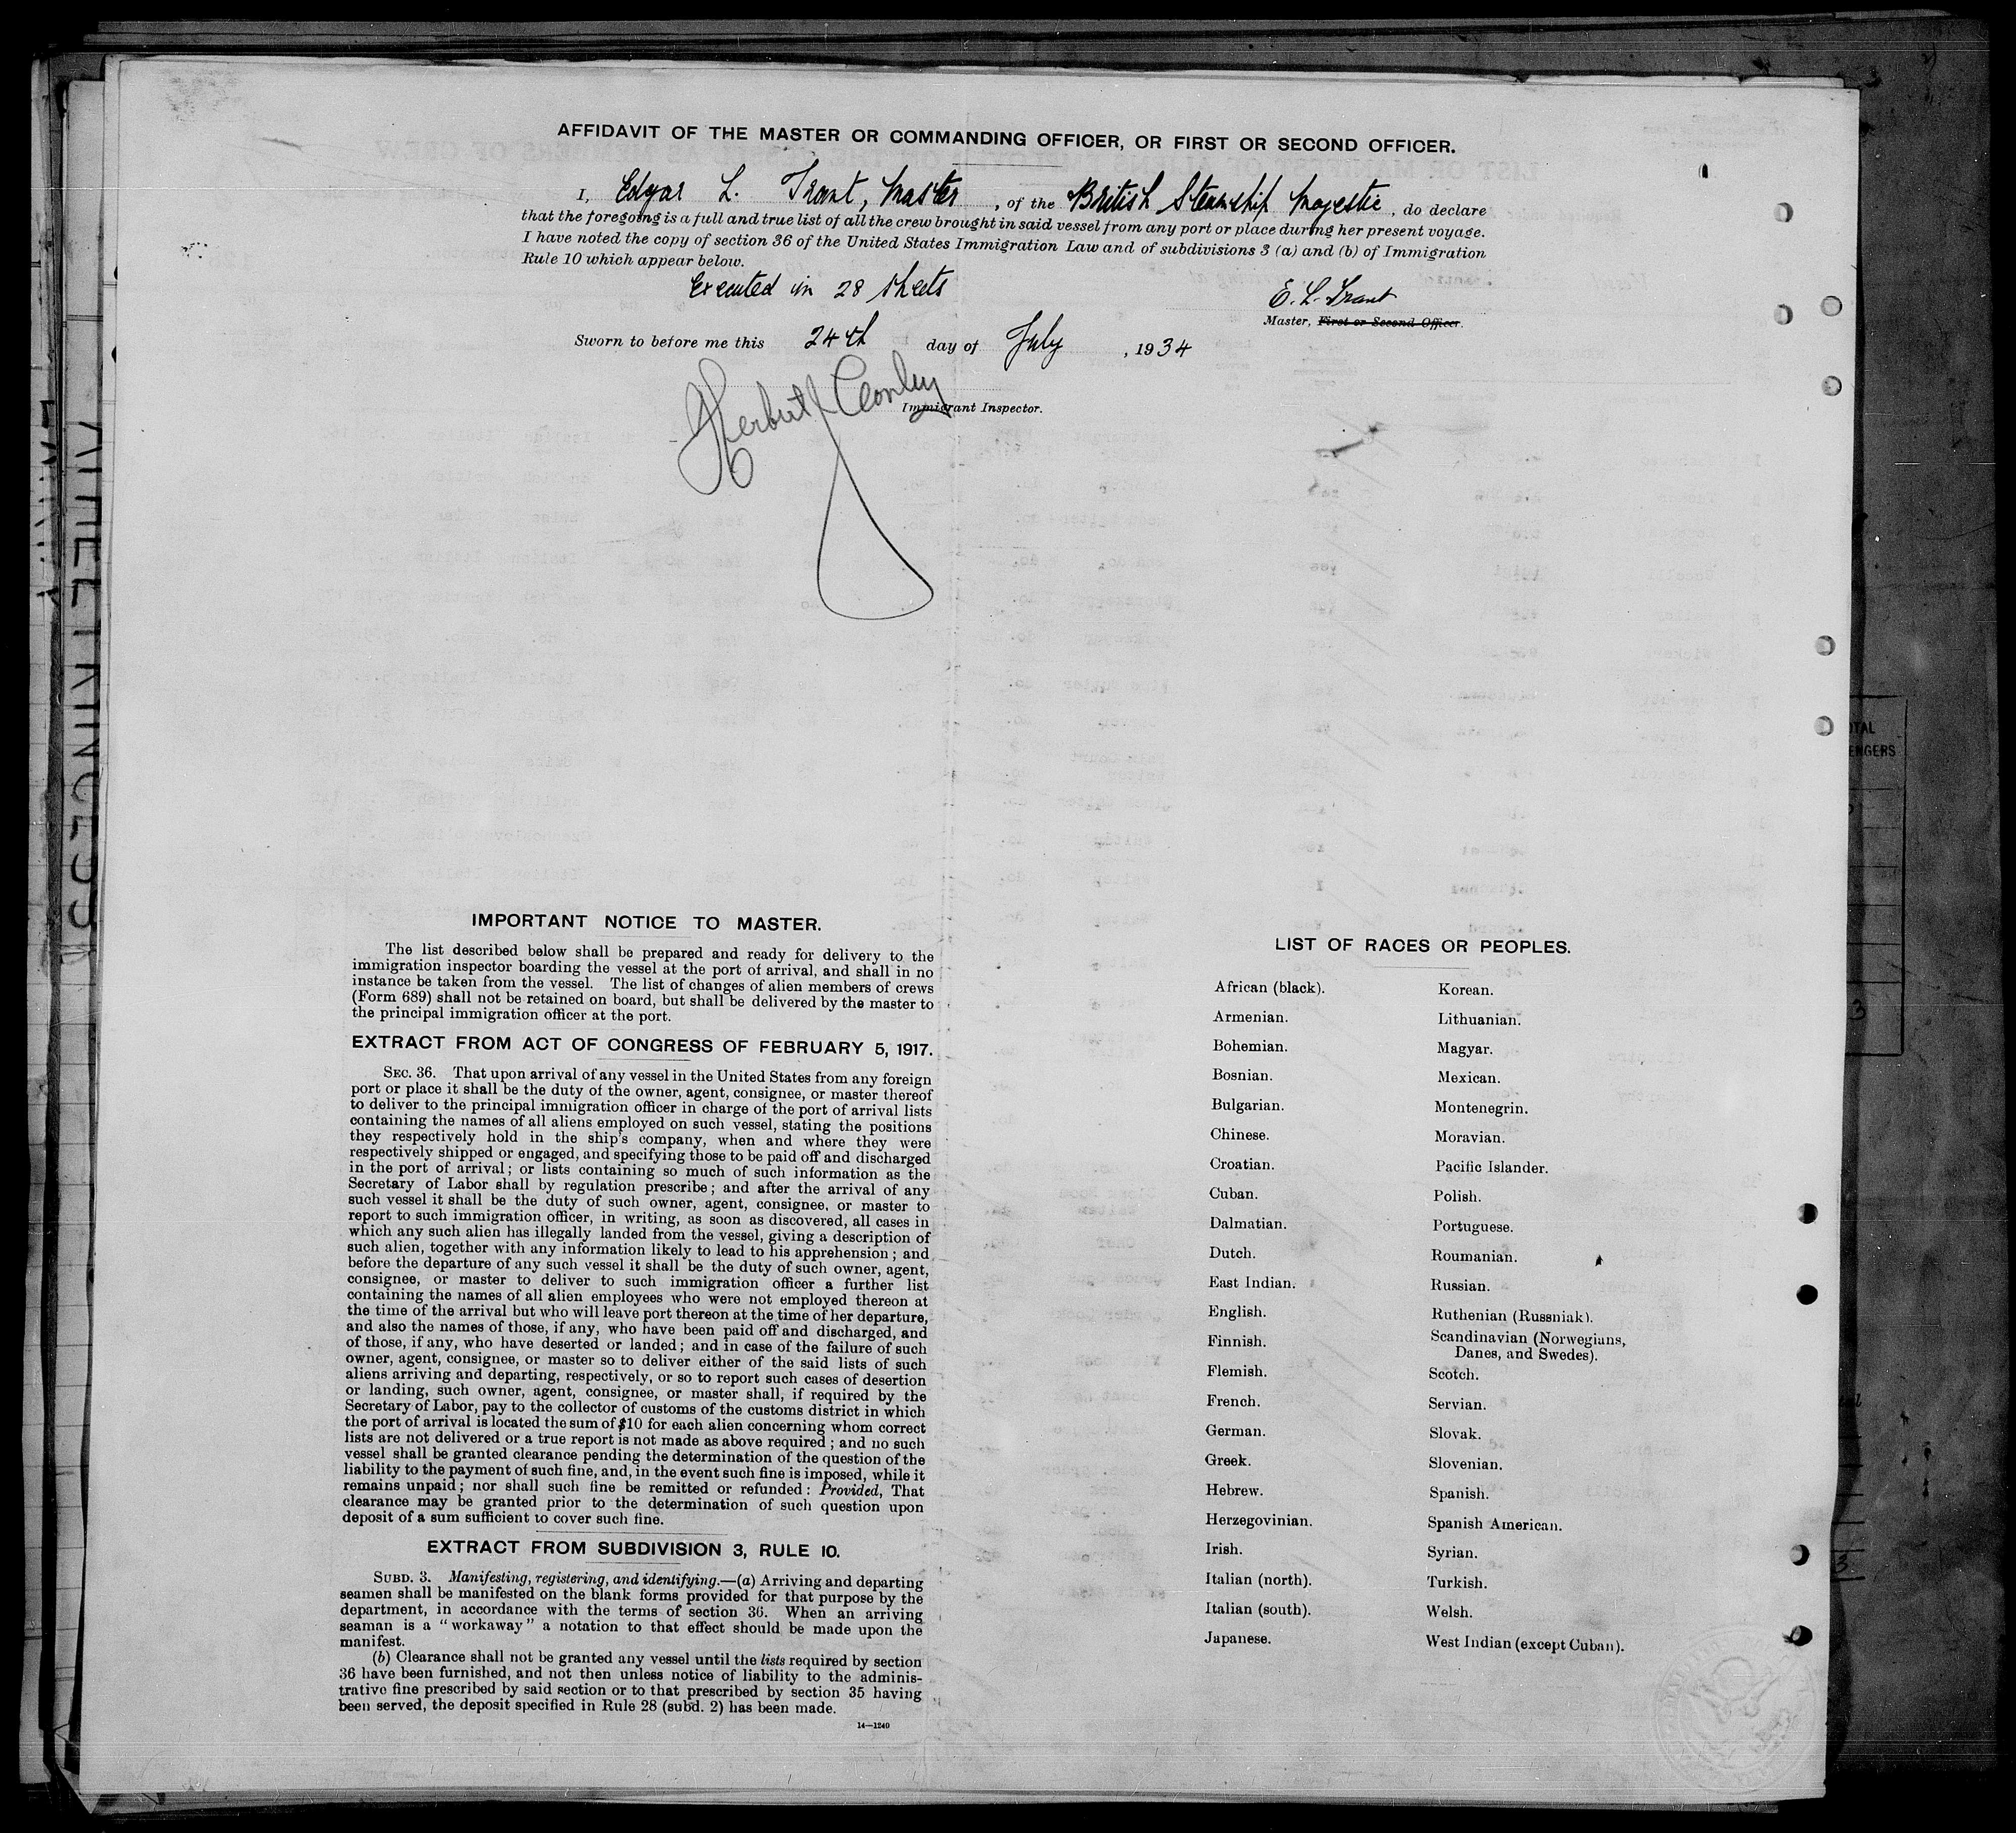 AFFIDAVIT OF THE MASTER OR COMMANDING OFFICER, OR FIRST OR SECOND OFFICER.
I, Edgar L. Trant, Master, of the British Steamship Majestic, do declare
that the foregoing is a full and true list of all the crew brought in said vessel from any port or place during her present voyage.
I have noted the copy of section 36 of the United States Immigration Law and of subdivisions 3 (a) and (b) of Immigration
Rule 10 which appear below.
Executed in 28 sheets
E. L. Trant
Master, First or Second Officer.
Sworn to before me this 24th day of July, 1934
Herbert J. Conley
Immigrant Inspector.
IMPORTANT NOTICE TO MASTER.
The list described below shall be prepared and ready for delivery to the
immigration inspector boarding the vessel at the port of arrival, and shall in no
instance be taken from the vessel. The list of changes of alien members of crews
(Form 689) shall not be retained on board, but shall be delivered by the master to
the principal immigration officer at the port.
EXTRACT FROM ACT OF CONGRESS OF FEBRUARY 5, 1917.
SEC. 36. That upon arrival of any vessel in the United States from any foreign
port or place it shall be the duty of the owner, agent, consignee, or master thereof
to deliver to the principal immigration officer in charge of the port of arrival lists
containing the names of all aliens employed on such vessel, stating the positions
they respectively hold in the ship's company, when and where they were
respectively shipped or engaged, and specifying those to be paid off and discharged
in the port of arrival; or lists containing so much of such information as the
Secretary of Labor shall by regulation prescribe; and after the arrival of any
such vessel it shall be the duty of such owner, agent, consignee, or master to
report to such immigration officer, in writing, as soon as discovered, all cases in
which any such alien has illegally landed from the vessel, giving a description of
such alien, together with any information likely to lead to his apprehension; and
before the departure of any such vessel it shall be the duty of such owner, agent,
consignee, or master to deliver to such immigration officer a further list
containing the names of all alien employees who were not employed thereon at
the time of the arrival but who will leave port thereon at the time of her departure,
and also the names of those, if any, who have been paid off and discharged, and
of those, if any, who have deserted or landed; and in case of the failure of such
owner, agent, consignee, or master so to deliver either of the said lists of such
aliens arriving and departing, respectively, or so to report such cases of desertion
or landing, such owner, agent, consignee, or master shall, if required by the
Secretary of Labor, pay to the collector of customs of the customs district in which
the port of arrival is located the sum of $10 for each alien concerning whom correct
lists are not delivered or a true report is not made as above required; and no such
vessel shall be granted clearance pending the determination of the question of the
liability to the payment of such fine, and, in the event such fine is imposed, while it
remains unpaid; nor shall such fine be remitted or refunded: Provided, That
clearance may be granted prior to the determination of such question upon
deposit of a sum sufficient to cover such fine.
EXTRACT FROM SUBDIVISION 3, RULE 10.
SUBD. 3. Manifesting, registering, and identifying.—(a) Arriving and departing
seamen shall be manifested on the blank forms provided for that purpose by the
department, in accordance with the terms of section 36. When an arriving
seaman is a "workaway" a notation to that effect should be made upon the
manifest.
(b) Clearance shall not be granted any vessel until the lists required by section
36 have been furnished, and not then unless notice of liability to the adminis-
trative fine prescribed by said section or to that prescribed by section 35 having
been served, the deposit specified in Rule 28 (subd. 2) has been made.
14—1240
LIST OF RACES OR PEOPLES.
African (black).
Armenian.
Bohemian.
Bosnian.
Bulgarian.
Chinese.
Croatian.
Cuban.
Dalmatian.
Dutch.
East Indian.
English.
Finnish.
Flemish.
French.
German.
Greek.
Hebrew.
Herzegovinian.
Irish.
Italian (north).
Italian (south).
Japanese.
Korean.
Lithuanian.
Magyar.
Mexican.
Montenegrin.
Moravian.
Pacific Islander.
Polish.
Portuguese.
Roumanian.
Russian.
Ruthenian (Russniak).
Scandinavian (Norwegians,
Danes, and Swedes).
Scotch.
Servian.
Slovak.
Slovenian.
Spanish.
Spanish American.
Syrian.
Turkish.
Welsh.
West Indian (except Cuban).